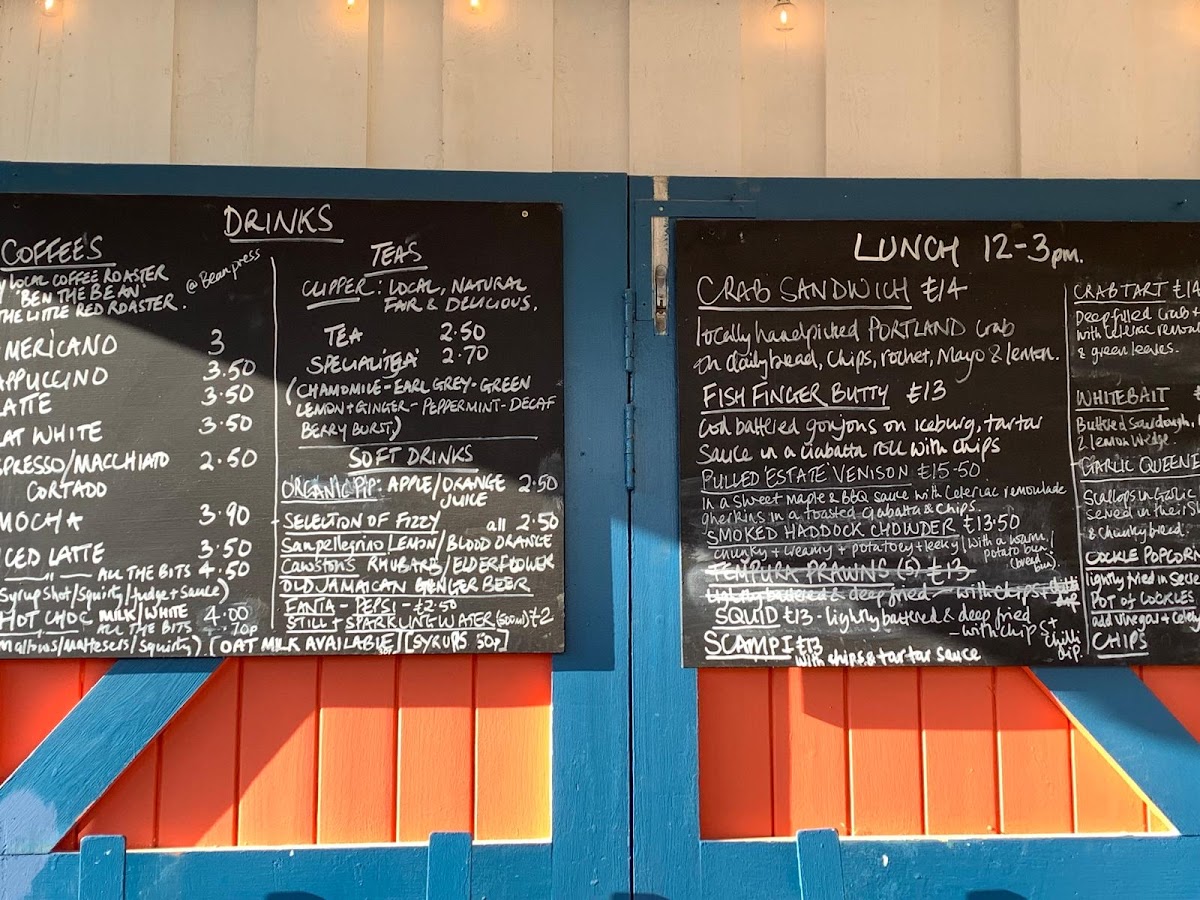 DRINKS
COFFEE'S
LOCAL COFFEE ROASTER
'BEN THE BEAN'
THE LITTLE RED ROASTER.
@Beanpress
AMERICANO 3
CAPPUCCINO 3.50
LATTE 3.50
FLAT WHITE 3.50
ESPRESSO/MACCHIATO 2.50
CORTADO
MOCHA 3.90
ICED LATTE 3.50
ALL THE BITS 4.50
(Syrup Shot/Squirty/fudge+sauce)
HOT CHOC MILK/WHITE 4.00
ALL THE BITS 4.70p
Mallows/Maltesers/Squirty)
[OAT MILK AVAILABLE] [SYRUPS 50p]
TEAS
CLIPPER: LOCAL, NATURAL
FAIR & DELICIOUS.
TEA 2.50
SPECIALI'TEA' 2.70
(CHAMOMILE-EARL GREY-GREEN
LEMON+GINGER-PEPPERMINT-DECAF
BERRY BURST,)
SOFT DRINKS
ORGANIC PIP: APPLE/ORANGE 2.50
JUICE
-SELECTION OF FIZZY all 2.50
Sanpellegrino LEMON/BLOOD ORANGE
CAWSTONS RHUBARB/ELDERFLOWER
OLD JAMAICAN GINGER BEER
FANTA - PEPSI - £2.50
STILL + SPARKLING WATER (500ml) £2
LUNCH 12-3pm.
CRAB SANDWICH £14
locally handpicked PORTLAND crab
on daily bread, chips, rocket, Mayo & lemon.
FISH FINGER BUTTY £13
Cod battered gonjons on iceburg, tartar
Sauce in a ciabatta roll with chips
PULLED 'ESTATE' VENISON £15-50
in a sweet maple & BBQ sauce with Celeriac remoulade
gherkins in a toasted Ciabatta & chips.
SMOKED HADDOCK CHOWDER £13.50
chunky + creamy + potatoey + leeky (with a warm
potato bun.
(bread bun).
TEMPURA PRAWNS (5) £13
lightly battered & deep fried - with chips +
SQUID £13 - lightly battered & deep fried
- with chips +
chilli dip.
SCAMPI £13
with chips & tartar sauce
CRAB TART £14
Deep filled crab +
with celeriac remoul
& green leaves.
WHITEBAIT
Buttered Sourdough,
2 lemon wedge.
GARLIC QUEENI
Scallops in Garlic
served in their S
& chunky bread.
COCKLE POPCORN
lightly fried in
POT of COCKLES
add vinegar +
CHIPS